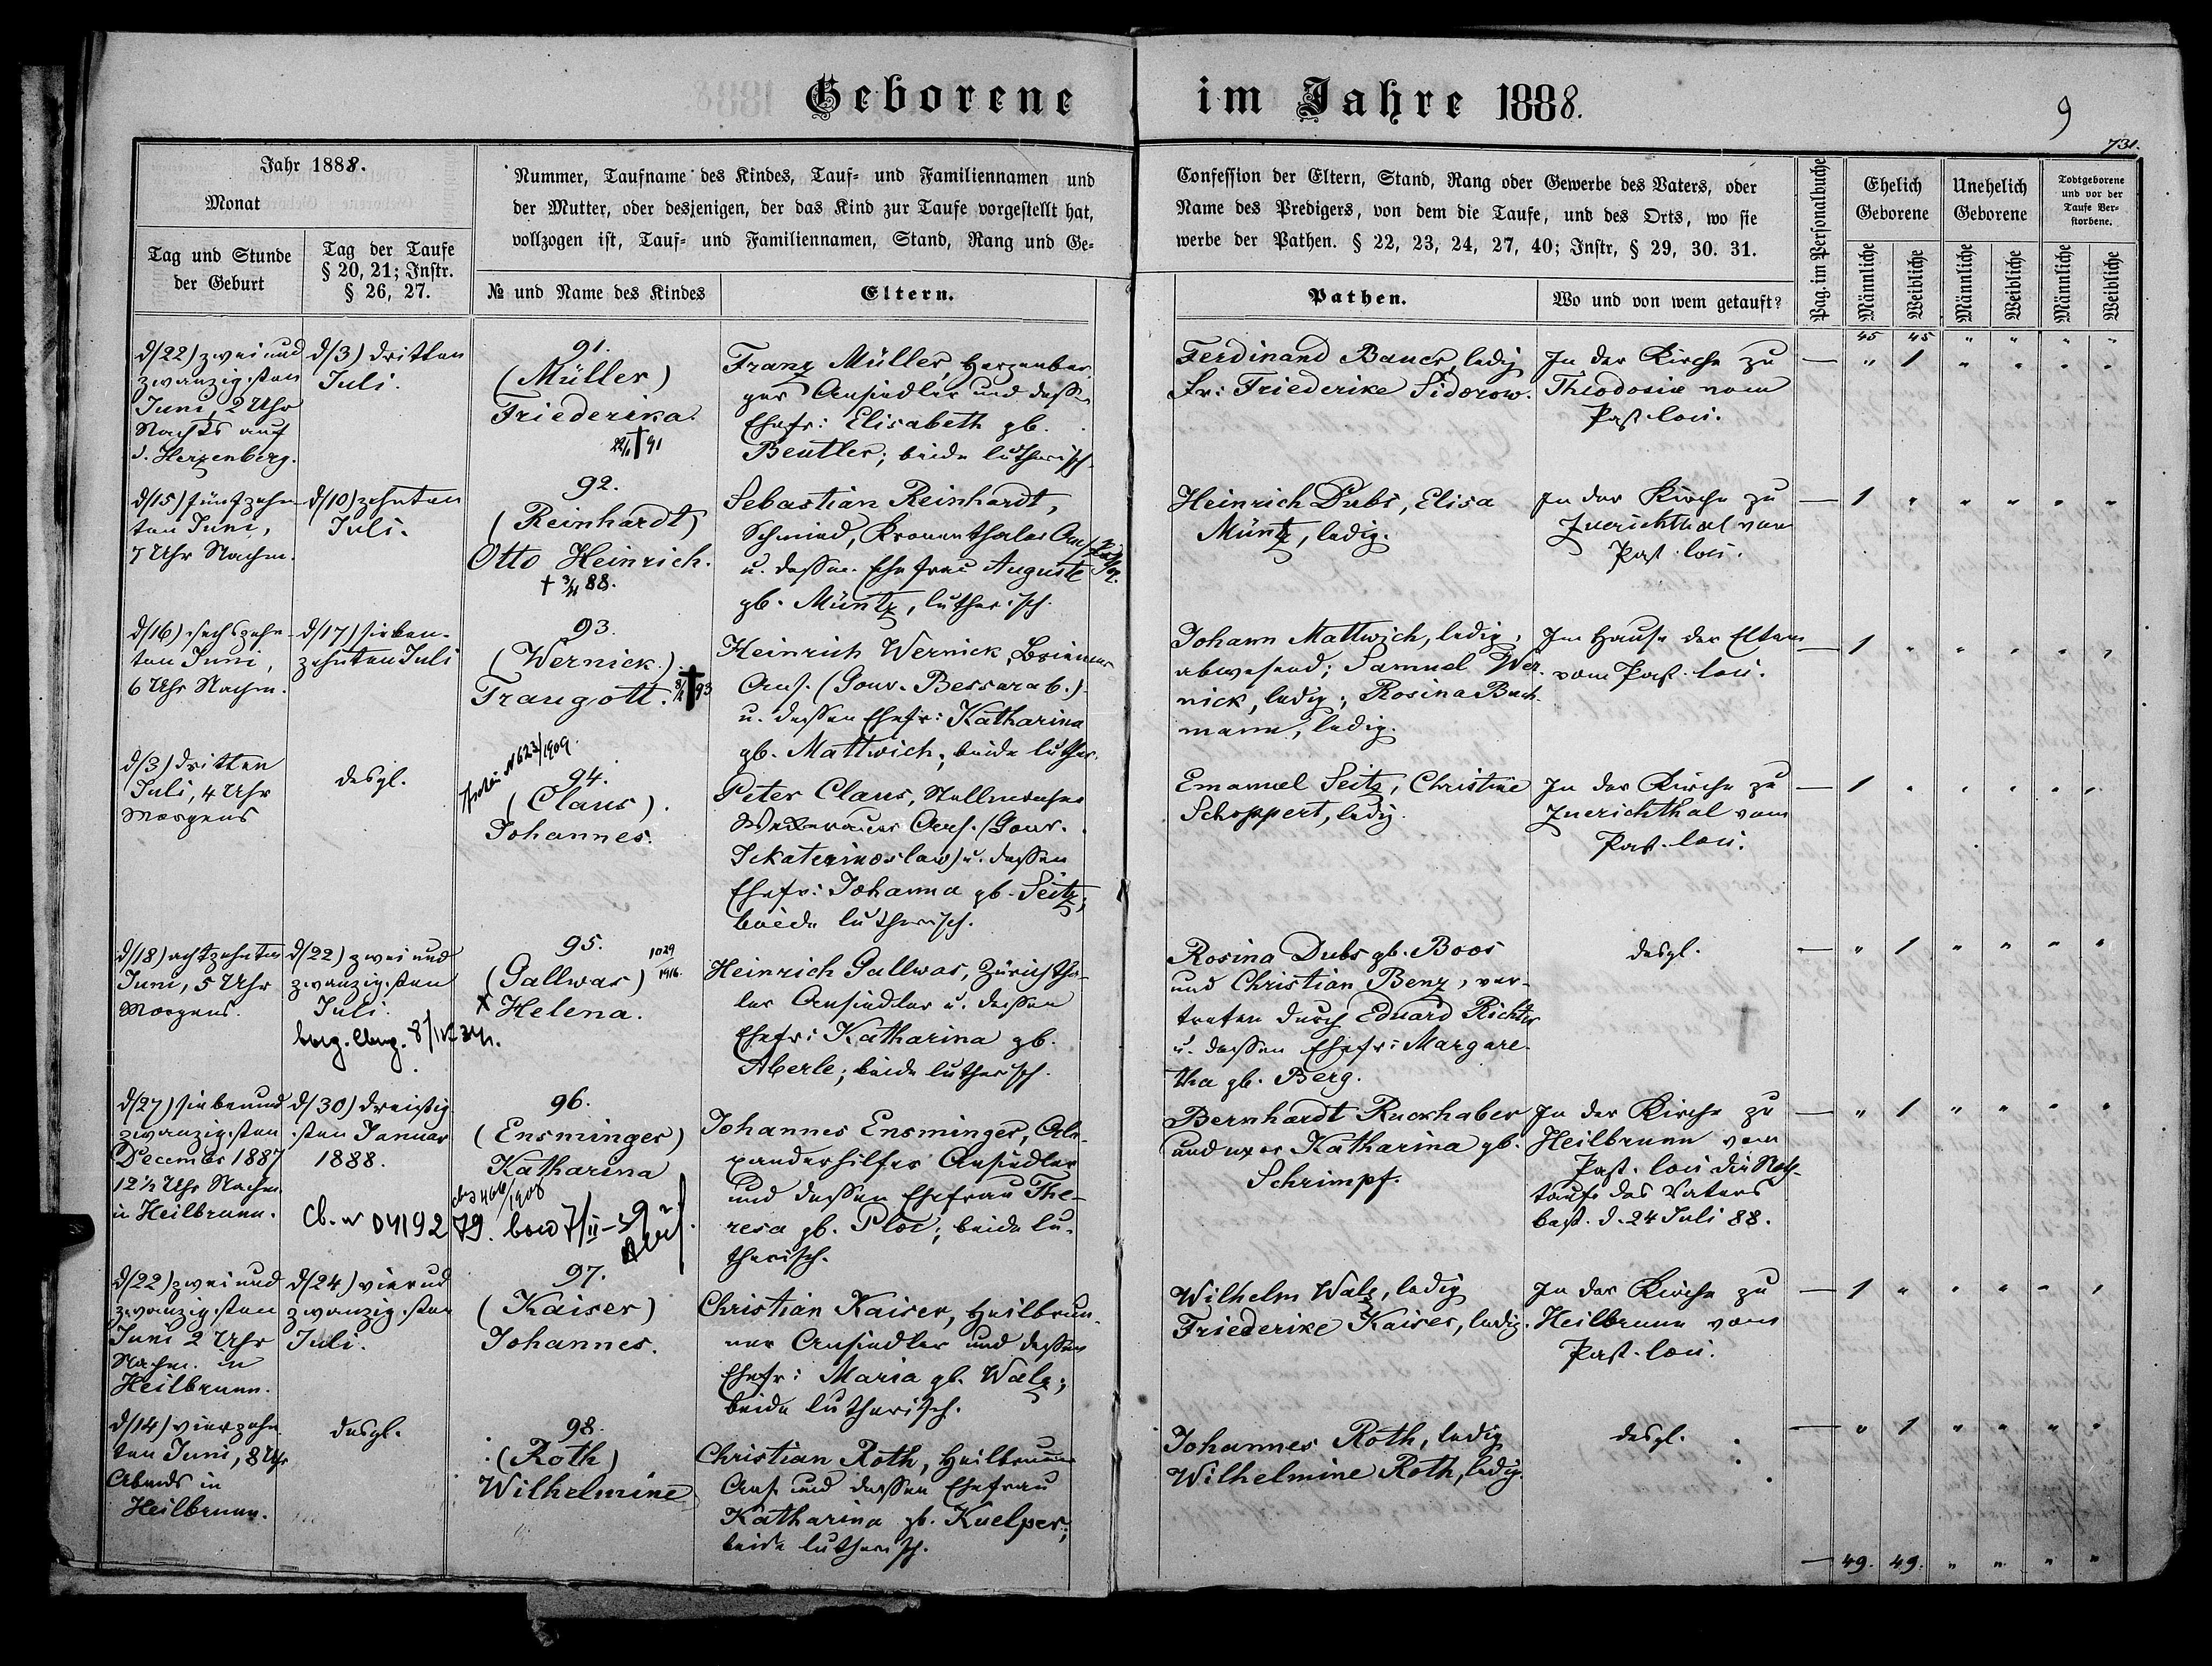 Geborene im Jahre 1888.
9
731.
Jahr 1888.
Monat
Tag und Stunde
der Geburt
Tag der Taufe
§ 20, 21; Instr.
§ 26, 27.
Nummer, Taufname des Kindes, Tauf- und Familiennamen und
der Mutter, oder desjenigen, der das Kind zur Taufe vorgestellt hat,
vollzogen ist, Tauf- und Familiennamen, Stand, Rang und Ge-
№ und Name des Kindes
Eltern.
Confession der Eltern, Stand, Rang oder Gewerbe des Vaters, oder
Name des Predigers, von dem die Taufe, und des Orts, wo sie
werbe der Pathen. § 22, 23, 24, 27, 40; Instr, § 29, 30. 31.
Pathen.
Wo und von wem getauft?
Pag. im Personalbuche
Ehelich
Geborene
Unehelich
Geborene
Todtgeborene
und vor der
Taufe Ver-
storbene.
Männliche
Weibliche
Männliche
Weibliche
Männliche
Weibliche
45 45 " " " "
d/(22) zwei und
zwanzigsten
Juni, 2 Uhr
Nachts auf
d. Herzenberg.
d/(3) dritten
Juli.
91.
(Müller)
Friederika.
† 91
Franz Müller, Herzenber-
ger Ansiedler und dessen
Ehefr: Elisabeth gb.
Beutler; beide lutherisch.
Ferdinand Bauer, ledig
Fr: Friederike Sidorow.
In der Kirche zu
Theodosia vom
Past. loci.
— " 1 " " " "
d/(15) fünfzehn-
ten Juni,
7 Uhr Nachm.
d/(10) zehnten
Juli.
92.
(Reinhardt)
Otto Heinrich.
† 88.
Sebastian Reinhardt,
Schmied, Kronenthaler Ans.
u. dessen Ehefrau Auguste
gb. Müntz, lutherisch.
Heinrich Dubs, Elisa
Müntz, ledig.
In der Kirche zu
Zuerichthal vom
Past. loci.
— 1 " " " " "
d/(16) sechszehn-
ten Juni,
6 Uhr Nachm.
d/(17) sieben-
zehnten Juli
93.
(Wernick.)
Traugott. † 93
Heinrich Wernick, Brienner
Ans. (Gouv. Bessarab.)
u. dessen Ehefr: Katharina
gb. Mattwich; beide luther.
Johann Mattwich, ledig,
abwesend; Samuel Wer-
nick, ledig; Rosina Bach-
mann, ledig.
Im Hause der Eltern
vom Past. loci.
— 1 " " " " "
d/(3) dritten
Juli, 4 Uhr
Morgens
desgl.
N 623/1909.
94.
(Claus).
Johannes.
Peter Claus, Stellmacher
Ans. (Gouv.
Iekaterinoslaw) u. dessen
Ehefr: Johanna gb. Seitz;
beide lutherisch.
Emanuel Seitz, Christine
Schoppert, ledig.
In der Kirche zu
Zuerichthal vom
Past. loci.
— 1 " " " " "
d/(18) achtzehnten
Juni, 5 Uhr
Morgens.
d/(22) zwei und
zwanzigsten
Juli.
95.
(Gallwas)
1029
1916.
x Helena.
Heinrich Gallwas, Zürichtha-
ler Ansiedler u. dessen
Ehefr: Katharina gb.
Aberle; beide lutherisch.
Rosina Dubs gb. Boos
und Christian Benz, ver-
treten durch Eduard Richter
u. dessen Ehefr: Margare-
tha gb. Berg.
desgl.
— " 1 " " " "
d/(27) sieben und
zwanzigsten
December 1887
12½ Uhr Nachm.
in Heilbrunn.
d/(30) dreißig-
sten Januar
1888.
96.
(Ensminger)
Katharina
466/1908
04192 79. 7/II-39
Johannes Ensminger, Ale-
xanderhilfer Ansiedler
und dessen Ehefrau The-
resa gb. Ploc; beide lu-
therisch.
Bernhardt Ruckhaber
und uxor Katharina gb.
Schrimpf.
In der Kirche zu
Heilbrunn vom
Past. loci die Noth-
taufe des Vaters
best. d. 24 Juli 88.
— " 1 " " " "
d/(22) zwei und
zwanzigsten
Juni 2 Uhr
Nachm. in
Heilbrunn.
d/(24) vierund
zwanzigsten
Juli.
97.
(Kaiser)
Johannes.
Christian Kaiser, Heilbrun-
ner Ansiedler und dessen
Ehefr: Maria gb. Walz;
beide lutherisch.
Wilhelm Walz, ledig
Friederike Kaiser, ledig.
In der Kirche zu
Heilbrunn vom
Past. loci.
— 1 " " " " "
d/(14) vierzehn-
ten Juni, 8 Uhr
Abends in
Heilbrunn.
desgl.
98.
(Roth)
Wilhelmine
Christian Roth, Heilbrunner
Ans. und dessen Ehefrau
Katharina gb. Kuelper;
beide lutherisch.
Johannes Roth, ledig
Wilhelmine Roth, ledig.
desgl.
— " 1 " " " "
— 49. 49. " " " "